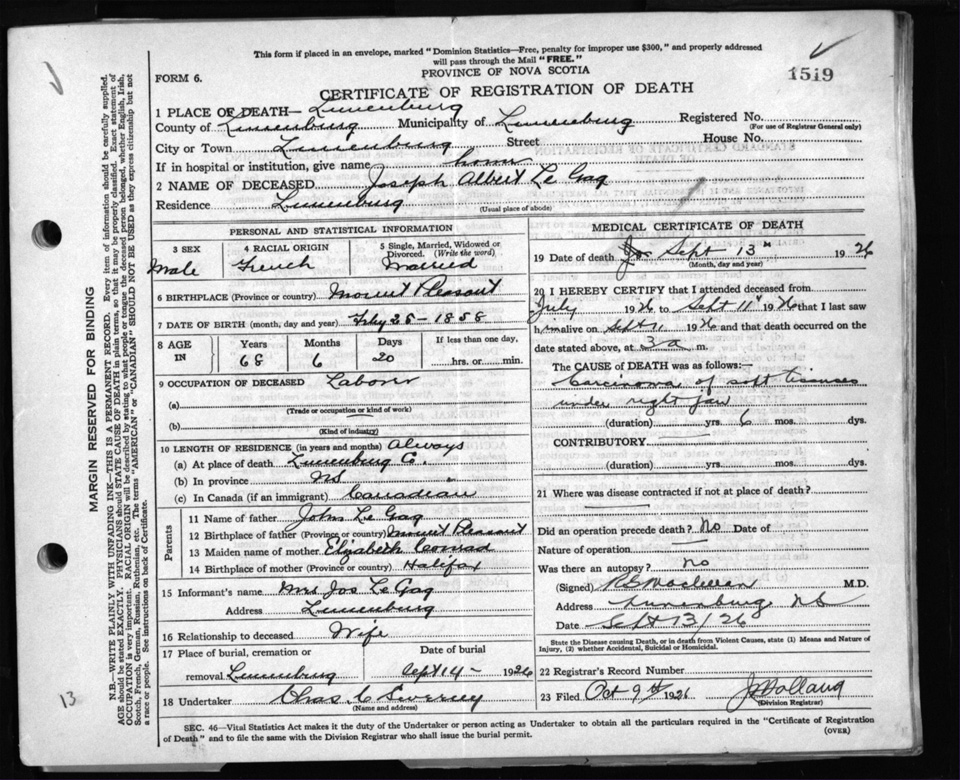 This form if placed in an envelope, marked "Dominion Statistics—Free, penalty for improper use $300," and properly addressed
will pass through the Mail "FREE."
FORM 6.
PROVINCE OF NOVA SCOTIA
1519
CERTIFICATE OF REGISTRATION OF DEATH
1 PLACE OF DEATH— Lunenburg
County of Lunenburg Municipality of Lunenburg Registered No.
(For use of Registrar General only)
City or Town Lunenburg Street House No.
If in hospital or institution, give name home
2 NAME OF DECEASED Joseph Albert Le Gag
Residence Lunenburg
(Usual place of abode)
PERSONAL AND STATISTICAL INFORMATION
3 SEX
Male
4 RACIAL ORIGIN
French
5 Single, Married, Widowed or
Divorced. (Write the word)
Married
6 BIRTHPLACE (Province or country) Mount Pleasant
7 DATE OF BIRTH (month, day and year) Feby 25 - 1858
8 AGE IN
Years Months Days If less than one day,
68 6 20 hrs. or min.
9 OCCUPATION OF DECEASED Laborer
(a)
(Trade or occupation or kind of work)
(b)
(Kind of industry)
10 LENGTH OF RESIDENCE (in years and months) Always
(a) At place of death Lunenburg C.
(b) In province NS
(c) In Canada (if an immigrant) Canadian
Parents
11 Name of father John Le Gag
12 Birthplace of father (Province or country) Mount Pleasant
13 Maiden name of mother Elizabeth Conrad
14 Birthplace of mother (Province or country) Halifax
15 Informant's name Mrs Jos Le Gag
Address Lunenburg
16 Relationship to deceased Wife
17 Place of burial, cremation or Date of burial
removal Lunenburg Sept 14 - 1926
18 Undertaker Chas. C
(Name and address)
MEDICAL CERTIFICATE OF DEATH
19 Date of death Sept 13" 1926
(Month, day and year)
20 I HEREBY CERTIFY that I attended deceased from
July 1926 to Sept 11" 1926 that I last saw
him alive on Sept 11 1926 and that death occurred on
date stated above, at 3 a m.
The CAUSE of DEATH was as follows:—
Carcinoma of soft tissues
under right jaw
(duration) yrs. 6 mos. dys.
CONTRIBUTORY
(duration) yrs. mos. dys.
21 Where was disease contracted if not at place of death?
Did an operation precede death? No Date of
Nature of operation
Was there an autopsy? No
(Signed) M.D.
Address Lunenburg NS
Date Sept 13/26
State the Disease causing Death, or in death from Violent Causes, state (1) Means and Nature of
Injury, (2) whether Accidental, Suicidal or Homicidal.
22 Registrar's Record Number
23 Filed Oct 9th 1926
(Division Registrar)
SEC. 46—Vital Statistics Act makes it the duty of the Undertaker or person acting as Undertaker to obtain all the particulars required in the "Certificate of Registration
of Death" and to file the same with the Division Registrar who shall issue the burial permit.
(OVER)
MARGIN RESERVED FOR BINDING
N.B.—WRITE PLAINLY WITH UNFADING INK—THIS IS A PERMANENT RECORD. Every item of information should be carefully supplied.
AGE should be stated EXACTLY. PHYSICIANS should STATE CAUSE OF DEATH in plain terms, so that it may be properly classified. Exact statement of
OCCUPATION is very important. RACIAL ORIGIN will be described by stating to what people or tongue the deceased person belonged, whether English, Irish,
Scotch, French, German, Russian, Ruthenian, etc. The terms "AMERICAN" or "CANADIAN" SHOULD NOT BE USED as they express citizenship but not
a race or people. See instructions on back of Certificate.
13